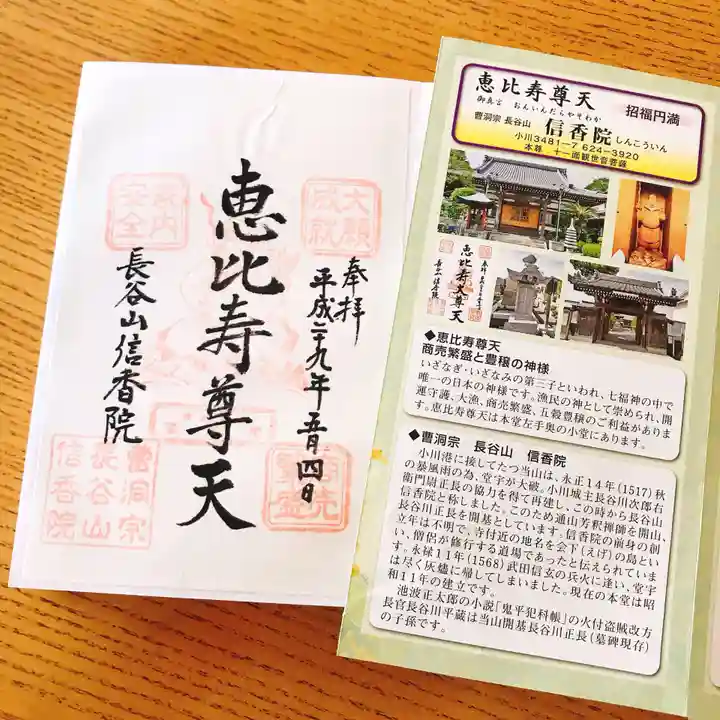 奉拝
平成二十九年五月四日
恵比寿尊天
長谷山信香院
大願
成就
家内
安全
曹洞宗
長谷山
信香院
恵比寿尊天
招福円満
御真言 おんいんだらやそわか
曹洞宗 長谷山 信香院 しんこういん
小川3481-7 624-3920
本尊 十一面観世音菩薩
◆恵比寿尊天
商売繁盛と豊穣の神様
いざなぎ・いざなみの第三子といわれ、七福神の中で
唯一の日本の神様です。漁民の神として崇められ、開
運守護、大漁、商売繁盛、五穀豊穣のご利益がありま
す。恵比寿尊天は本堂左手奥の小堂にあります。
◆曹洞宗 長谷山 信香院
小川港に接してたつ当山は、永正14年(1517)秋
の暴風雨の為、堂宇が大破。小川城主長谷川次郎右
衛門尉正長の協力を得て再建し、この時から長谷山
信香院と称しました。このため通山芳釈禅師を開山、
長谷川正長を開基としています。信香院の前身の創
立年は不明で、寺付近の地名を会下(えげ)の島とい
い、僧侶が修行する道場であったと伝えられていま
す。永禄11年(1568)武田信玄の兵火に逢い、堂宇
は尽く灰燼に帰してしまいました。現在の本堂は昭
和11年の建立です。
池波正太郎の小説「鬼平犯科帳」の火付盗賊改方
長官長谷川平蔵は当山開基長谷川正長(墓碑現存)
の子孫です。